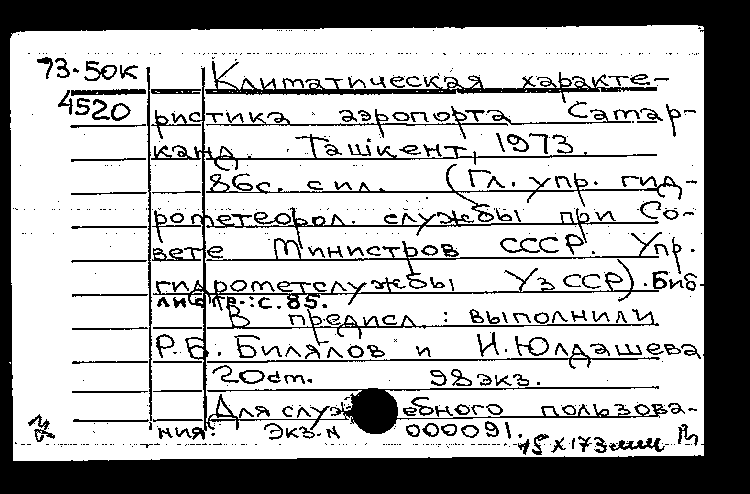 73-50к Климатическая характе-
4520 ристика аэропорта Самар-
канд. Ташкент, 1973.
86с. с ил. (Гл. упр. гид-
рометеорол. службы при Со-
вете Министров СССР. Упр.
гидрометслужбы УзССР). Биб-
лиогр.: с. 85.
В предисл.: выполнили
Р.Б. Билялов и И. Юлдашева
20 см. 98 экз.
Для служебного пользова-
ния. Экз. N 000091.